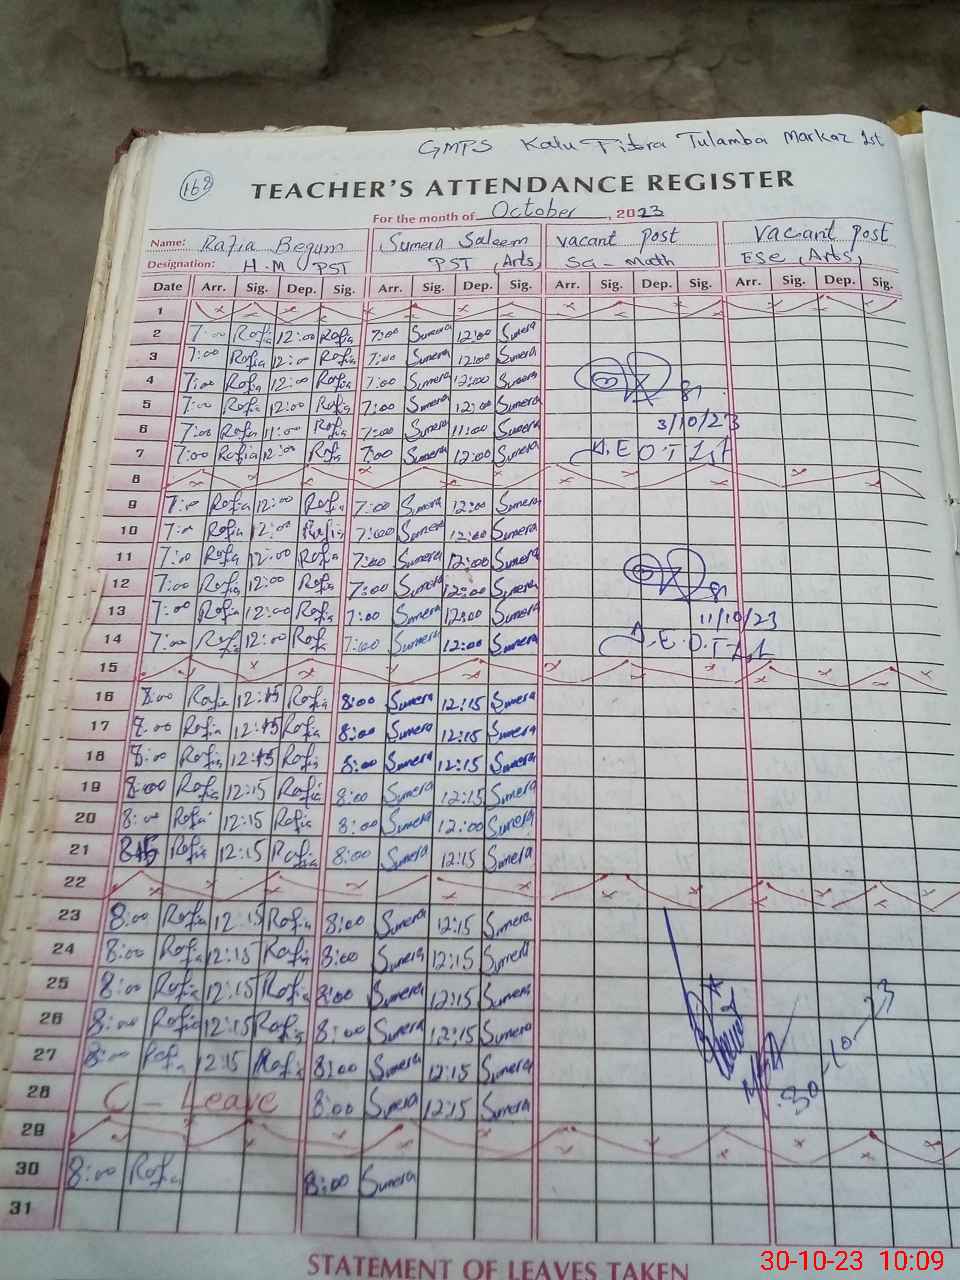 GMPS Kalu Fitra Tulamba Markaz 1st
168
TEACHER'S ATTENDANCE REGISTER
For the month of October, 2023
Name: Rafia Begum Sumera Saleem vacant post vacant post
Designation: H.M PST PST (Arts) SG-Math ESE, Arts,
Date Arr. Sig. Dep. Sig. Arr. Sig. Dep. Sig. Arr. Sig. Dep. Sig. Arr. Sig. Dep. Sig.
1
2 7:00 Rafia 12:00 Rafia 7:00 Sumera 12:00 Sumera
3 7:00 Rafia 12:00 Rafia 7:00 Sumera 12:00 Sumera
4 7:00 Rafia 12:00 Rafia 7:00 Sumera 12:00 Sumera
5 7:00 Rafia 12:00 Rafia 7:00 Sumera 12:00 Sumera
6 7:00 Rafia 11:00 Rafia 7:00 Sumera 11:00 Sumera 3/10/23
7 7:00 Rafia 12:00 Rafia 7:00 Sumera 12:00 Sumera A.E.O.T 1st
8
9 7:00 Rafia 12:00 Rafia 7:00 Sumera 12:00 Sumera
10 7:00 Rafia 12:00 Rafia 7:00 Sumera 12:00 Sumera
11 7:00 Rafia 12:00 Rafia 7:00 Sumera 12:00 Sumera
12 7:00 Rafia 12:00 Rafia 7:00 Sumera 12:00 Sumera
13 7:00 Rafia 12:00 Rafia 7:00 Sumera 12:00 Sumera 11/10/23
14 7:00 Rafia 12:00 Rafia 7:00 Sumera 12:00 Sumera A.E.O.T-1st
15
16 8:00 Rafia 12:15 Rafia 8:00 Sumera 12:15 Sumera
17 8:00 Rafia 12:15 Rafia 8:00 Sumera 12:15 Sumera
18 8:00 Rafia 12:15 Rafia 8:00 Sumera 12:15 Sumera
19 8:00 Rafia 12:15 Rafia 8:00 Sumera 12:15 Sumera
20 8:00 Rafia 12:15 Rafia 8:00 Sumera 12:00 Sumera
21 8:15 Rafia 12:15 Rafia 8:00 Sumera 12:15 Sumera
22
23 8:00 Rafia 12:15 Rafia 8:00 Sumera 12:15 Sumera
24 8:00 Rafia 12:15 Rafia 8:00 Sumera 12:15 Sumera
25 8:00 Rafia 12:15 Rafia 8:00 Sumera 12:15 Sumera
26 8:00 Rafia 12:15 Rafia 8:00 Sumera 12:15 Sumera
27 8:00 Rafia 12:15 Rafia 8:00 Sumera 12:15 Sumera
28 C-Leave 8:00 Sumera 12:15 Sumera 30-10-23
29
30 8:00 Rafia 8:00 Sumera
31
STATEMENT OF LEAVES TAKEN
30-10-23 10:09